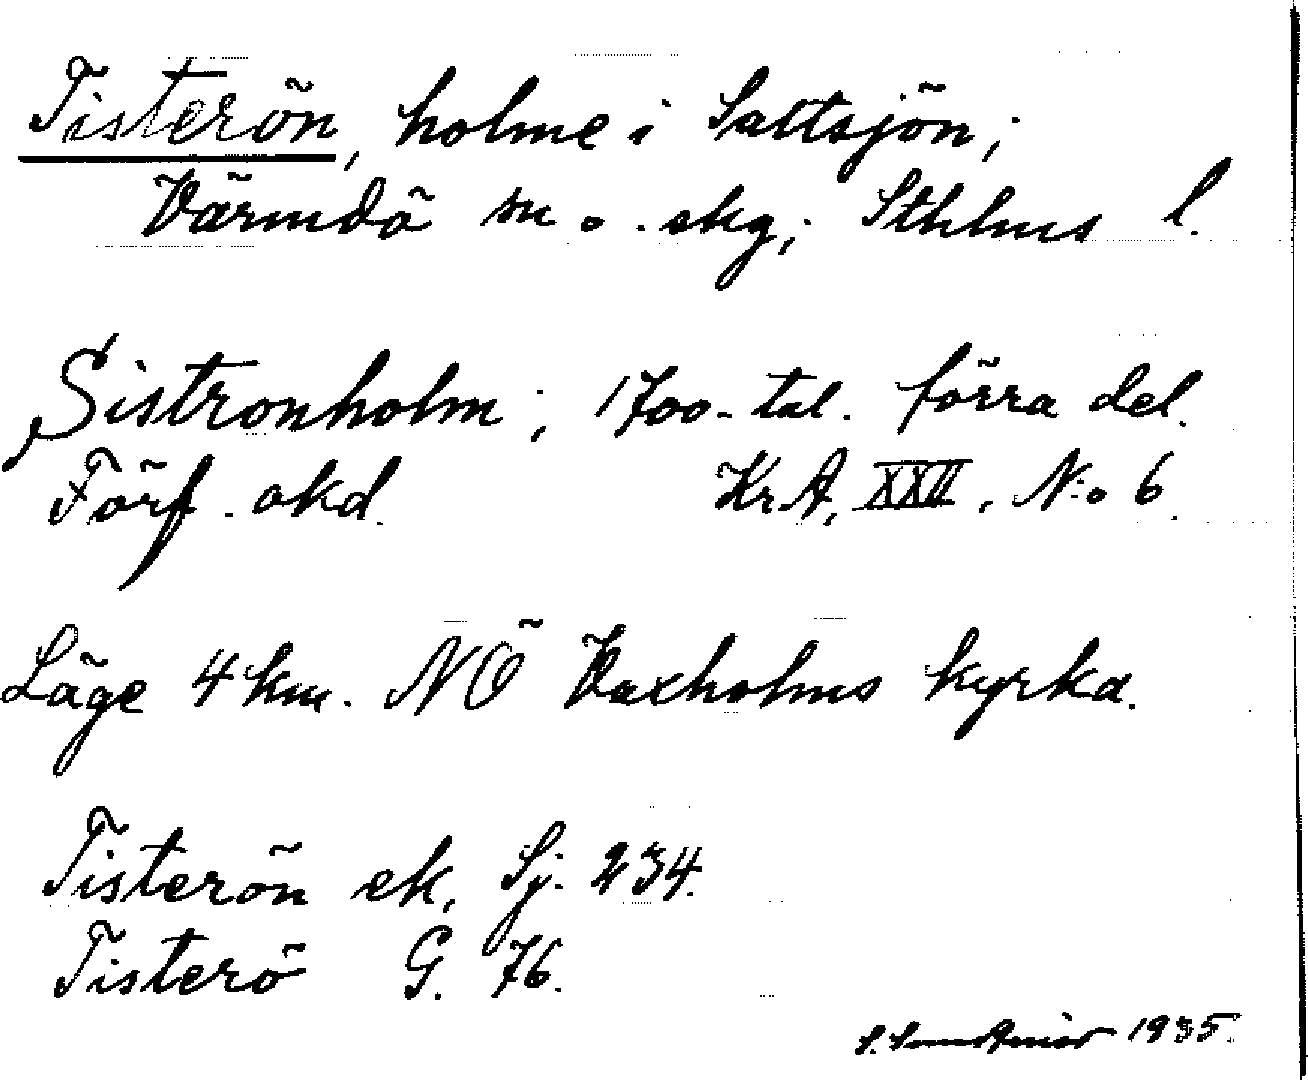 Tisterön, holme i Saltsjön;
Värmdö sn o. skg; Sthlms l.
Sistronholm; 1700-tal. förra del.
Förf. okd. KrA, XXII, N:o 6.
Läge 4 km. NÖ Vaxholms kyrka.
Tisterön ek, Sj. 234.
Tisterö G. 76.
S. 1935.